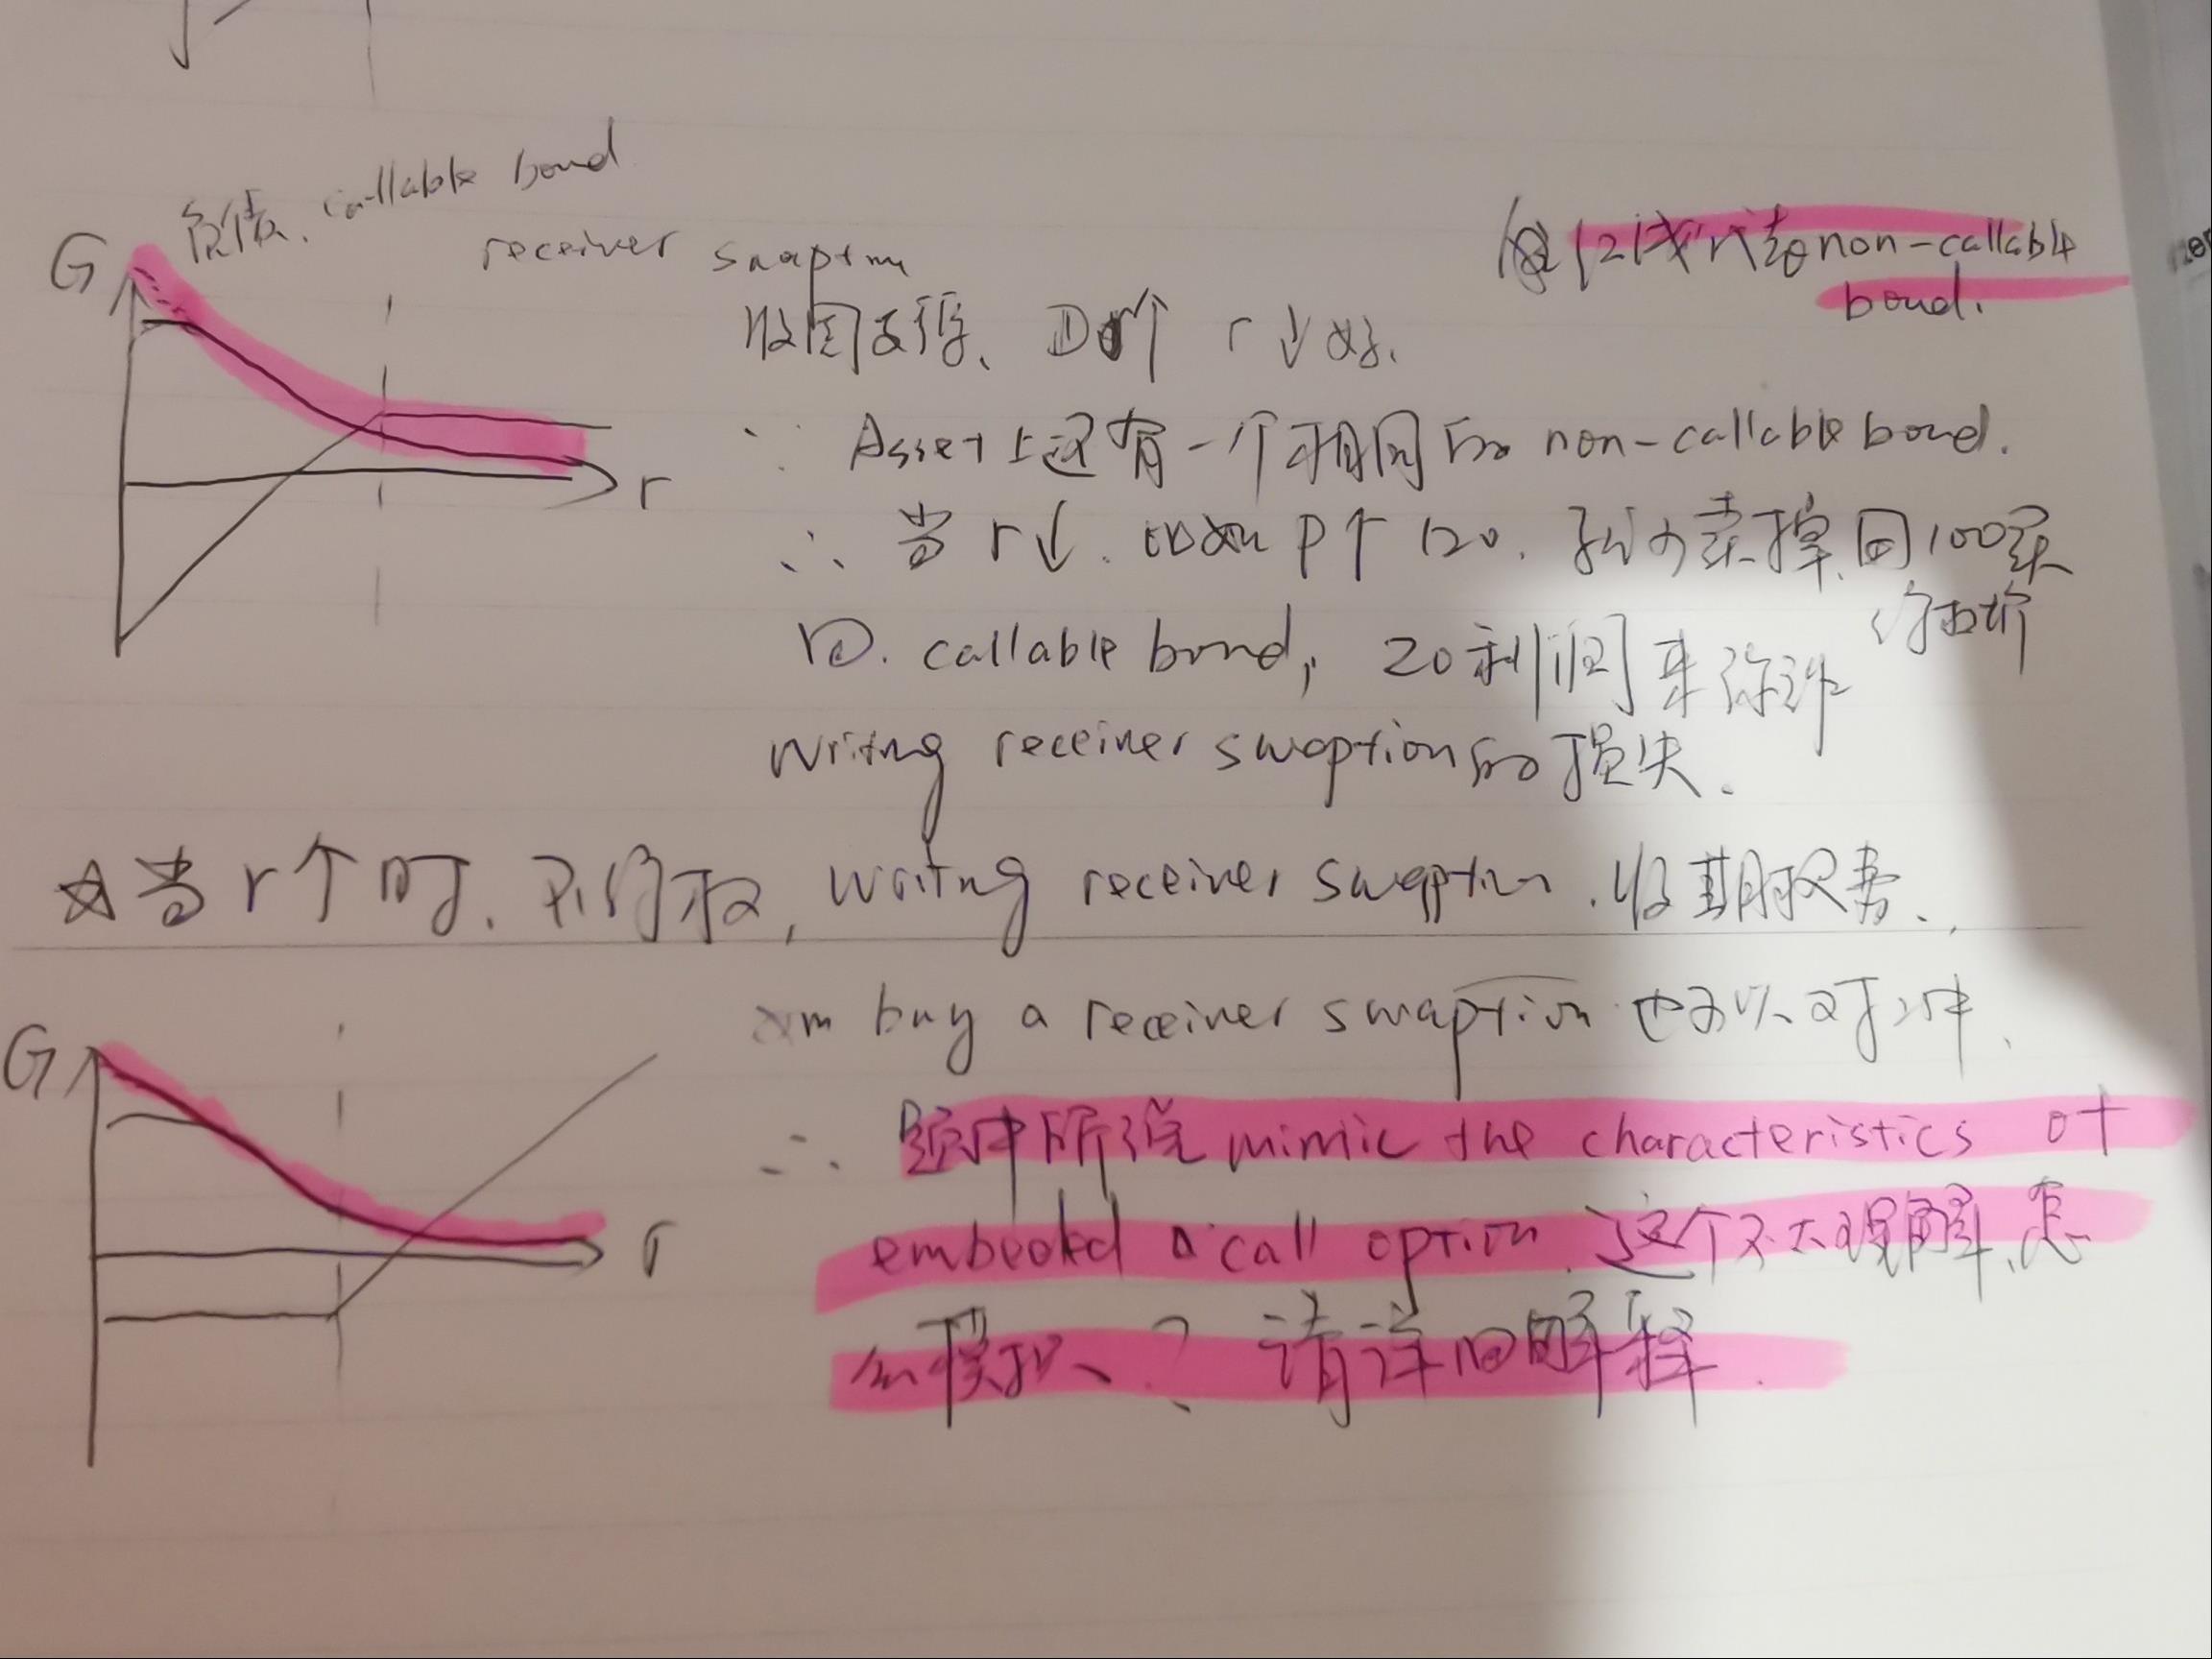 负债、callable bond
G
receiver swaption
红线代表non-callable
bond.
收固支浮、D↑ r↓好、
∵ Asset上还有一个相同的 non-callable bond.
r
∴ 当 r↓. P↑ 120. 可以卖掉、回100买
行权价
回. callable bond, 20利润来弥补
writing receiver swaption的损失.
☆当r个时、不行权, writing receiver swaption.收期权费、
buy a receiver swaption 也可以对冲、
G
∴ 题中所说 mimic the characteristics of
embedded a call option.这个不太理解、怎
r
么模拟、? 请详细解释.